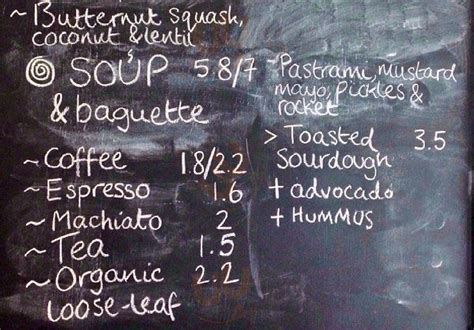 ~Butternut Squash,
coconut & lentil
SOUP 5.8/7
& baguette
~Coffee 1.8/2.2
~Espresso 1.6
~Machiato 2
~Tea 1.5
~Organic 2.2
loose-leaf
~Pastrami, Mustard
mayo, Pickles &
rocket
> Toasted 3.5
Sourdough
+ advocado
+ HUMMUS